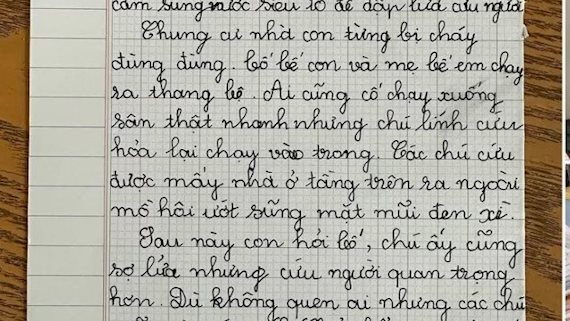 cầm súng nước siêu to để dập lửa cứu người
Chung cư nhà con từng bị cháy
đùng đùng. Bố bế con và mẹ bế em chạy
ra thang bộ. Ai cũng cố chạy xuống
sân thật nhanh nhưng chú lính cứu
hỏa lại chạy vào trong. Các chú cứu
được mấy nhà ở tầng trên ra ngoài
mồ hôi ướt sũng mặt mũi đen xì.
Sau này con hỏi bố, chú ấy cũng
sợ lửa nhưng cứu người quan trọng
hơn. Dù không quen ai nhưng các chú